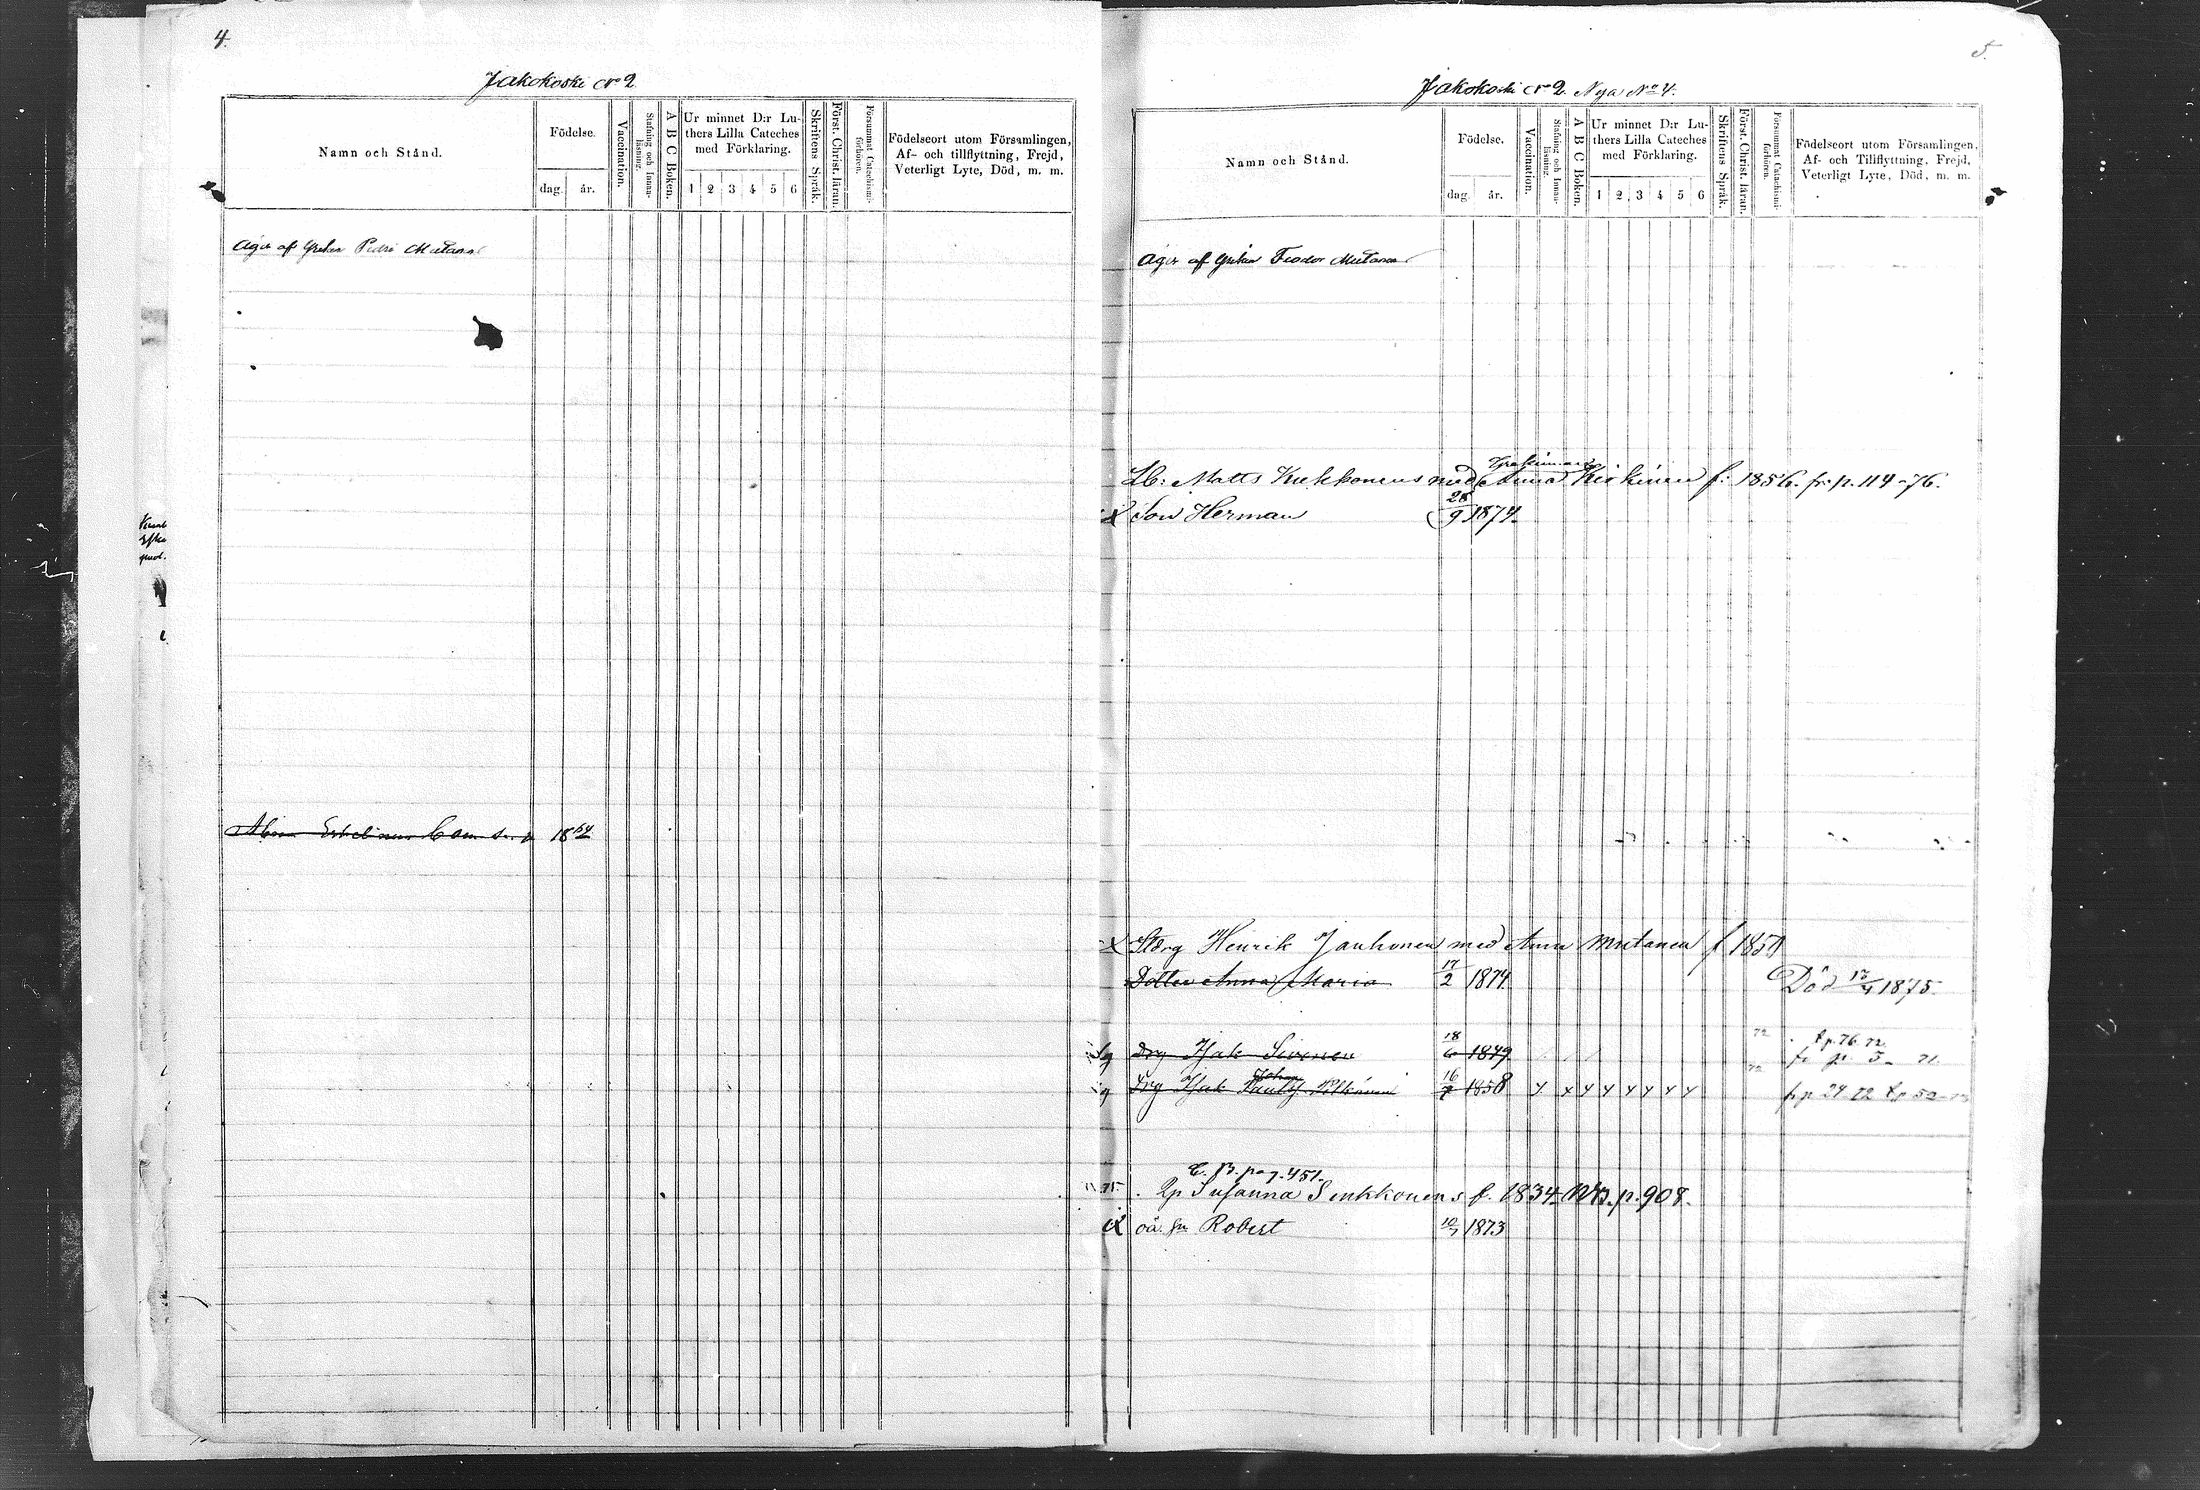 4.
Jakokoski No 2
Namn och Stånd.
Födelse.
dag.
år.
Vaccination.
Stafning och Innanläsning.
A B C Boken.
Ur minnet D:r Luthers Lilla Cateches med Förklaring.
1 2 3 4 5 6
Skriftens Språk.
Först. Christ. läran.
Försummat Catechismiförhören.
Födelseort utom Församlingen,
Af- och tillflyttning, Frejd,
Veterligt Lyte, Död, m. m.
Äges af Greken Pedri Mutanen
18 64
5.
Jakokoski No 2. Nya No 4.
Namn och Stånd.
Födelse.
dag.
år.
Vaccination.
Stafning och Innanläsning.
A B C Boken.
Ur minnet D:r Luthers Lilla Cateches med Förklaring.
1 2 3 4 5 6
Skriftens Språk.
Först. Christ. läran.
Försummat Catechismiförhören.
Födelseort utom Församlingen,
Af- och Tillflyttning, Frejd,
Veterligt Lyte, Död, m. m.
Äges af Greken Feodor Mutanen
Matts Kukkonens med Anna Kiiskinen f. 1856. fr. p. 114-76.
x Son Herman 28/9 1874.
x Henrik Jauhonen med Anna Mutanen f 1851
Dotter Anna Maria 17/2 1874. Död 13/4 1875.
drg Isak Sivonen 18/6 1849 72 t p. 76. 72. fr p. 5 - 71.
drg Isak Johan 16/7 1858 y x y y y y y y 72 fr p 24 72 t p 52
C. B. pag. 451.
Susanna Sinkkonens f. 1834 p. 908.
x oä. sn Robert 10/7 1873